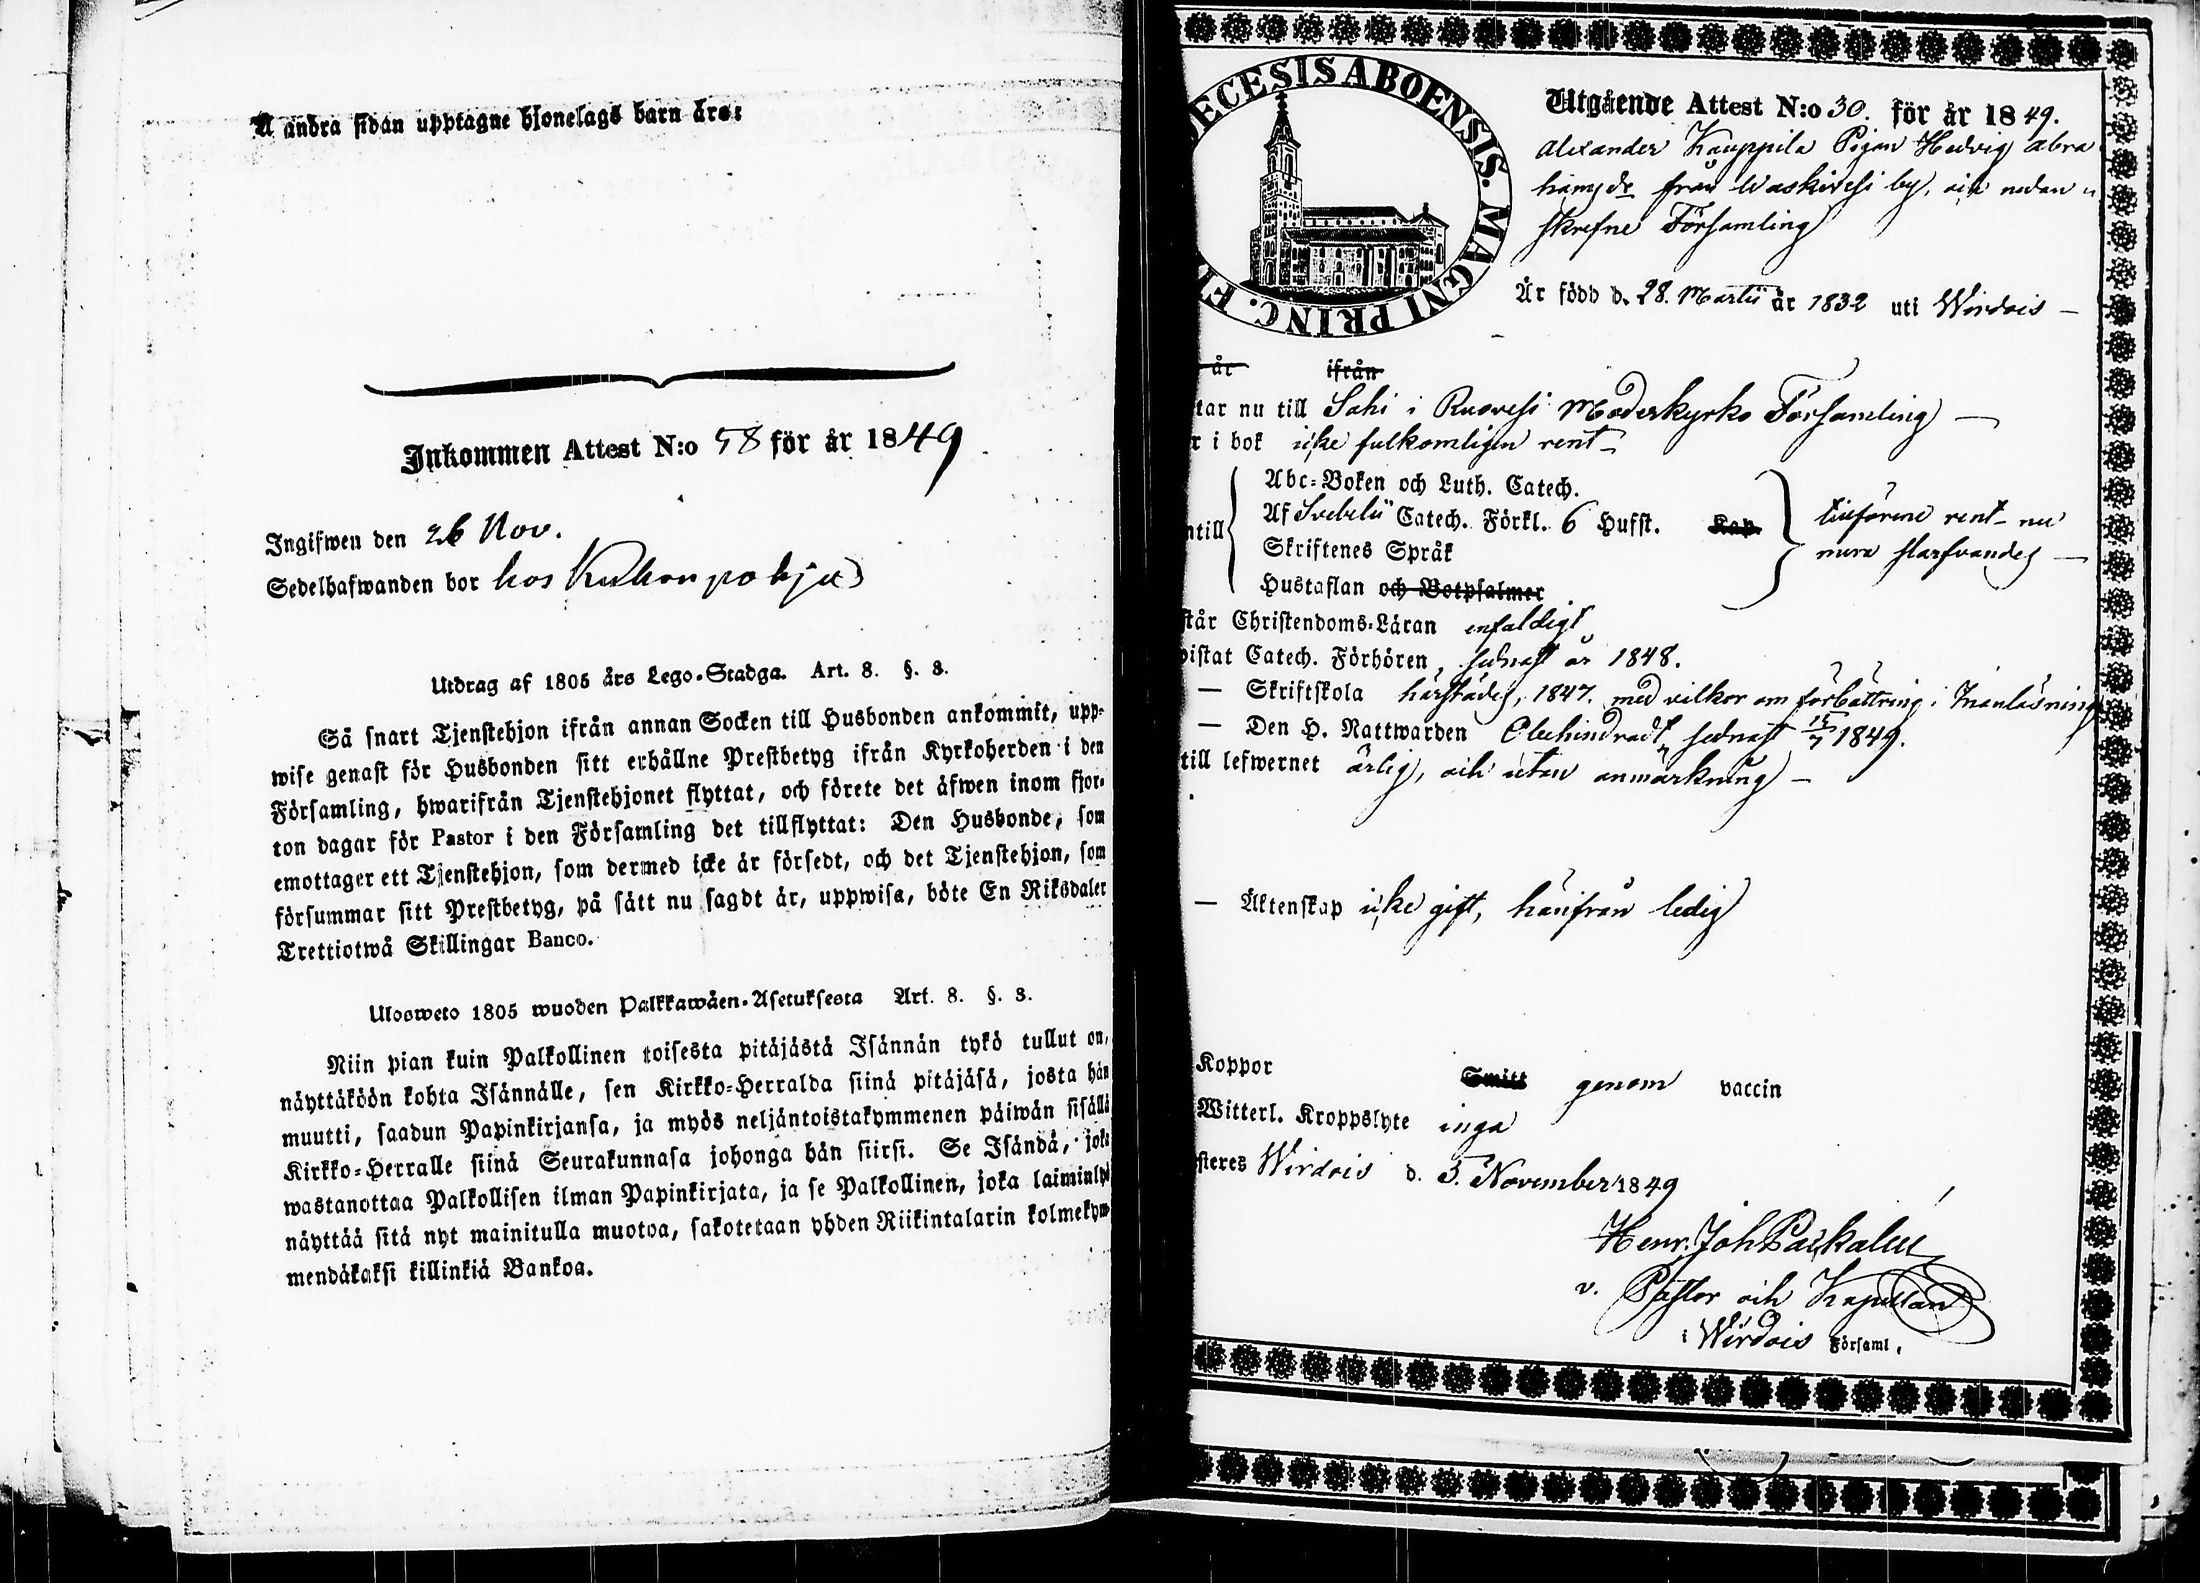 Å andra sidan upptagne hjonelags barn äro:
Inkommen Attest N:o 58 för år 1849
Ingifwen den 26 Nov.
Sedelhafwanden bor hos
Utdrag af 1805 års Lego-Stadga. Art. 8. §. 3.
Så snart Tjenstehjon ifrån annan Socken till Husbonden ankommit, upp-
wise genast för Husbonden sitt erhållne Prestbetyg ifrån Kyrkoherden i den
Församling, hwarifrån Tjenstehjonet flyttat, och förete det äfwen inom fjor-
ton dagar för Pastor i den Församling det tillflyttat: Den Husbonde, som
emottager ett Tjenstehjon, som dermed icke är försedt, och det Tjenstehjon, som
försummar sitt Prestbetyg, på sätt nu sagdt är, uppwisa, böte En Riksdaler
Trettiotwå Skillingar Banco.
Ulosweto 1805 wuoden Palkkawäen-Asetuksesta Art. 8. §. 3.
Niin pian kuin Palkollinen toisesta pitäjästä Isännän tykö tullut on,
näyttäköön kohta Isännälle, sen Kirkko-Herralda siinä pitäjäsä, josta hän
muutti, saadun Papinkirjansa, ja myös neljäntoistakymmenen päiwän sisällä
Kirkko-Herralle siinä Seurakunnasa johonga hän siirsi. Se Isändä, joka
wastanottaa Palkollisen ilman Papinkirjata, ja se Palkollinen, joka laiminlyö
näyttää sitä nyt mainitulla muotoa, sakotetaan yhden Riikintalarin kolmekym-
mendäkaksi killinkiä Bankoa.
ECESIS ABOENSIS. MAGNI PRINC. F
Utgående Attest N:o 30. för år 1849.
Alexander Kauppila Pigan Hedvig Abra
hamsdr från Waskivesi by, och nedan
skrefne Församling
Är född d. 28. Martii år 1832 uti Wirdois —
år ifrån
tar nu till Sahi i Ruovesi Moderkyrko Församling —
r i bok icke fulkomligen rent
Abc-Boken och Luth. Catech.
Af Svebelii Catech. Förkl. 6 Hufst. Kap.
ntill
Skriftenes Språk
Hustaflan och Botpsalmer
rent nu
mera
står Christendoms-Läran enfaldigt
bistat Catech. Förhören, sednast år 1848.
— Skriftskola härstädes, 1847. med vilkor om förbättring i Innanläsning
— Den H. Nattwarden Obehindradt, sednast 15/7 1849.
till lefwernet ärlig, och utan anmärkning —
— Äktenskap icke gift, härifrån ledig
Koppor Smitt genom vaccin
Witterl. Kroppslyte inga
steres Wirdois d. 5. November 1849
Henr. Joh
v. Pastor och Kapellan
i Wirdois Församl.